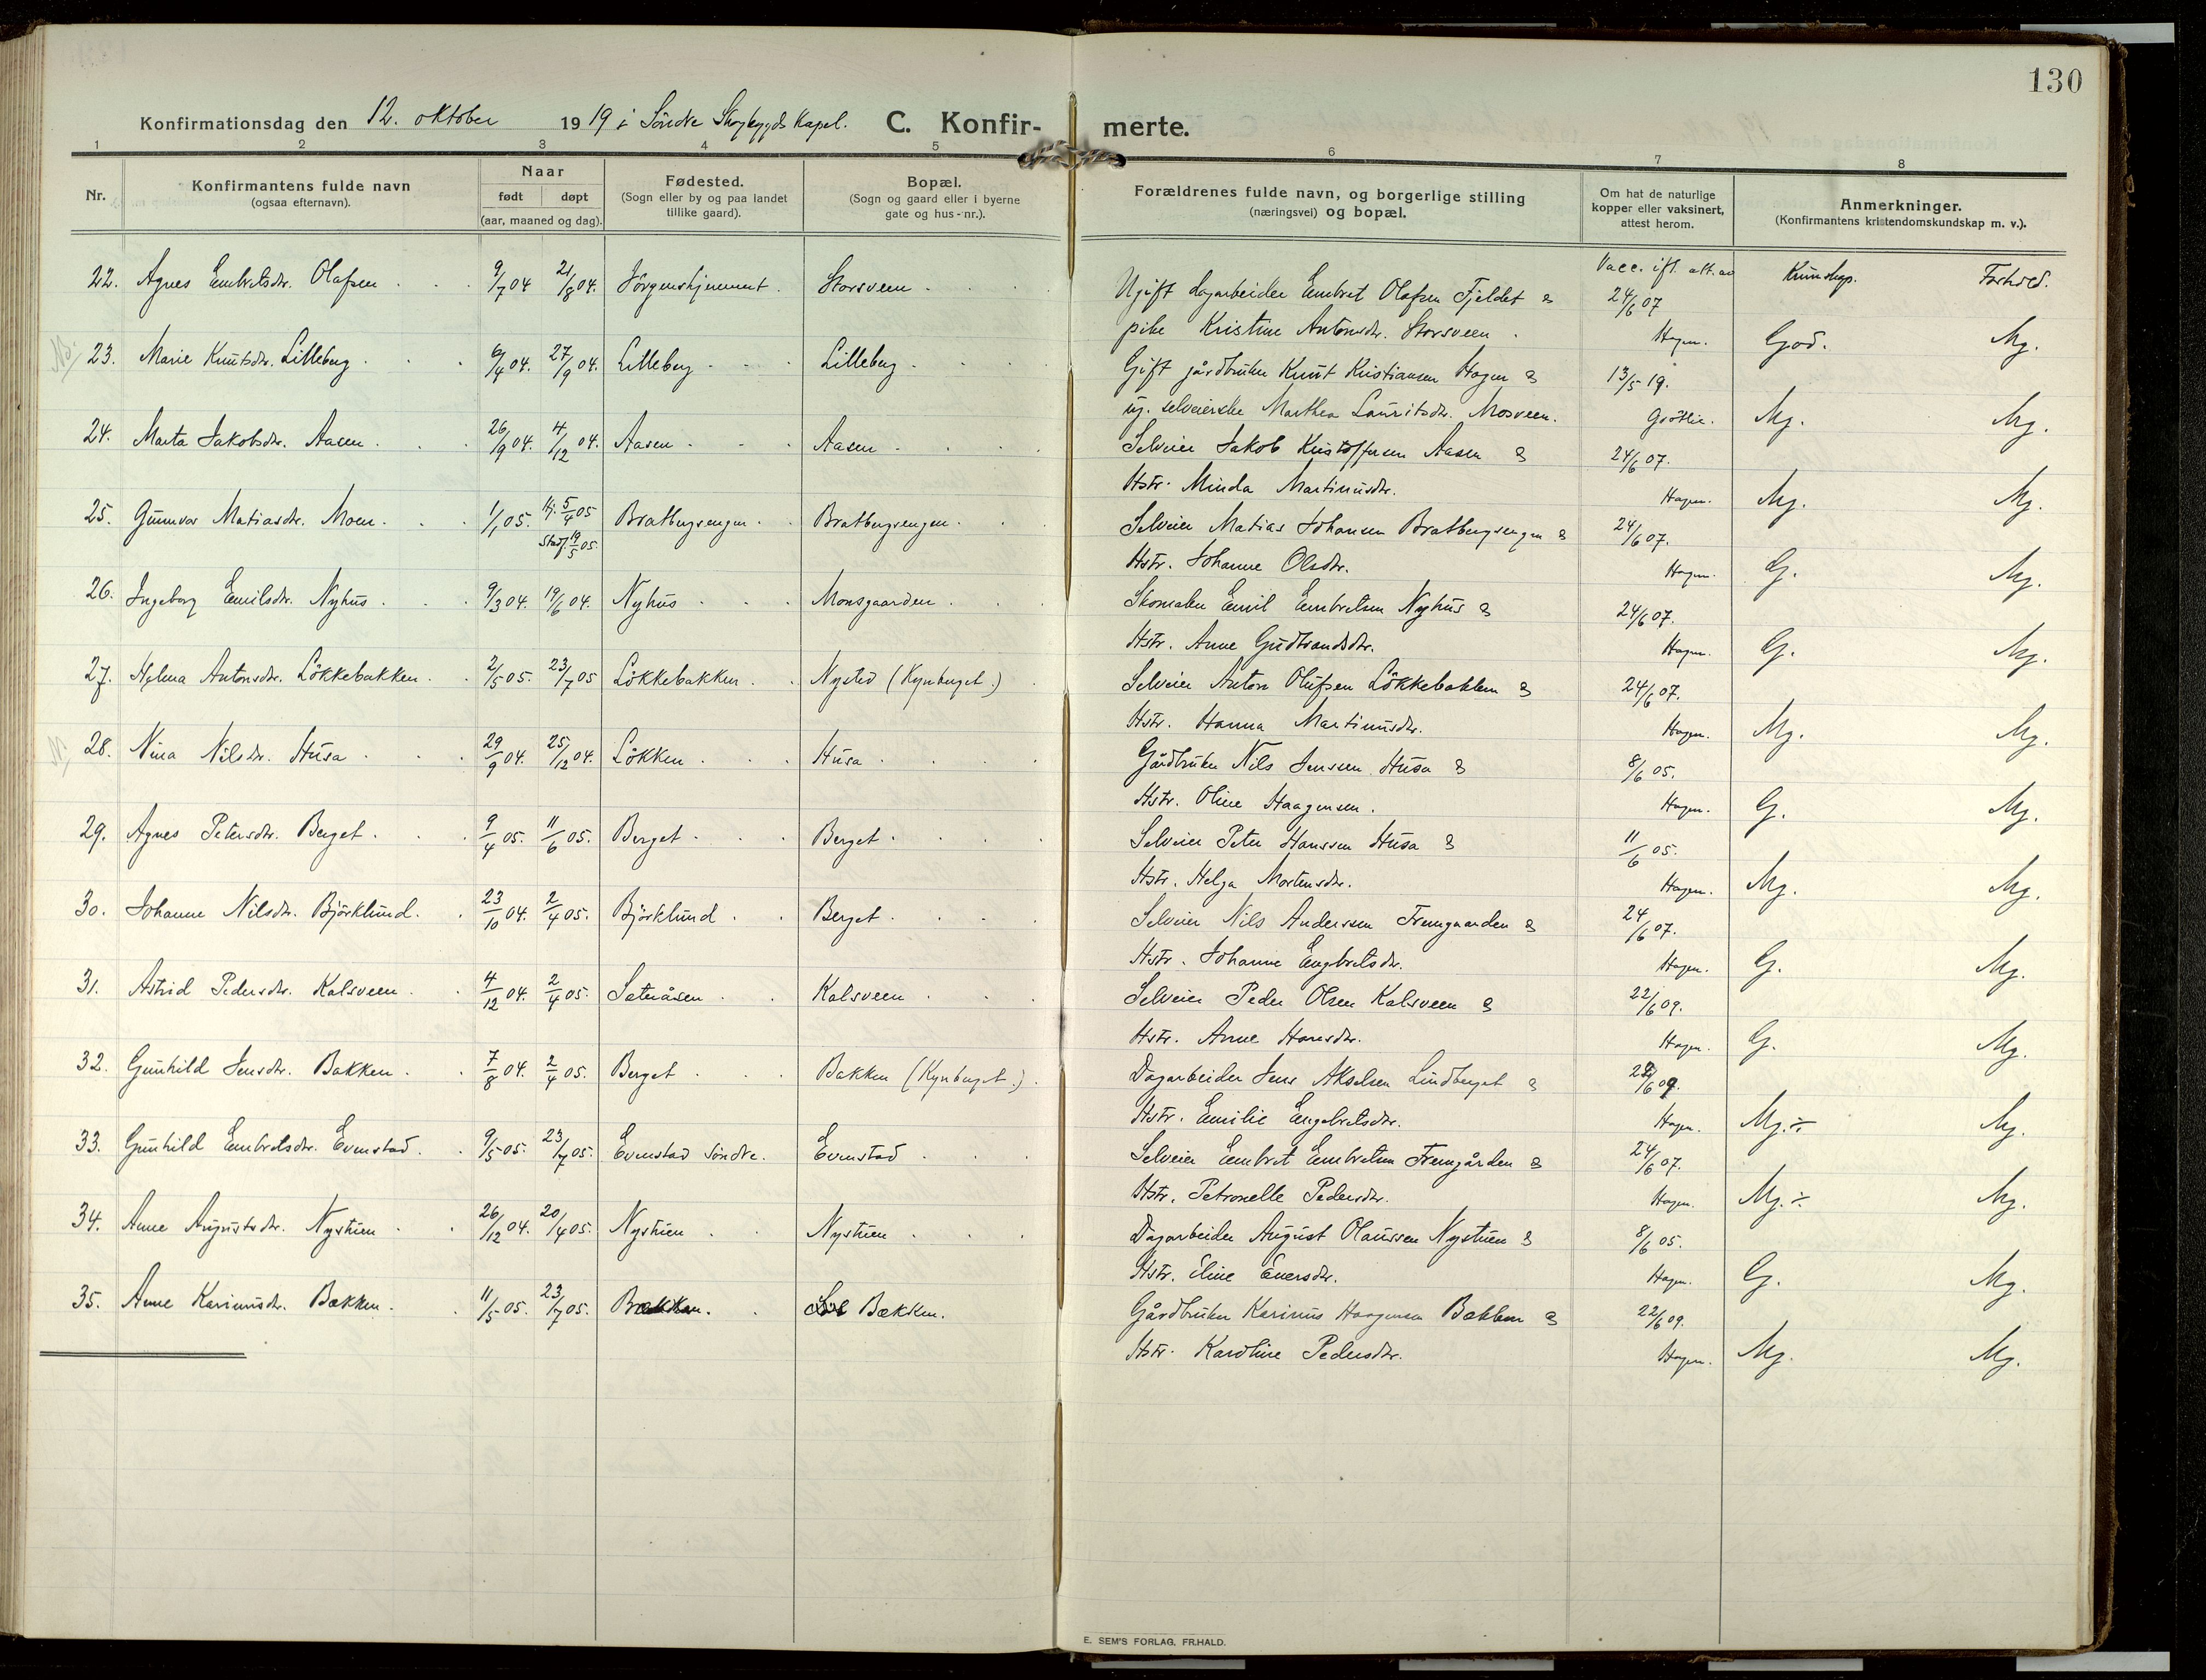 130
Konfirmationsdag den 12. oktober 1919 i Söndre Skogbygds Kapel. C. Konfir- merte.
1 2 3 4 5 6 7 8
Nr. Konfirmantens fulde navn (ogsaa efternavn). Naar født døpt (aar, maaned og dag). Fødested. (Sogn eller by og paa landet tillike gaard). Bopæl. (Sogn og gaard eller i byerne gate og hus-nr.). Forældrenes fulde navn, og borgerlige stilling (næringsvei) og bopæl. Om hat de naturlige kopper eller vaksinert, attest herom. Anmerkninger. (Konfirmantens kristendomskundskap m. v.).
Vacc. ifl. att. av Kundskap. Forhold.
22. Agnes Embretsdr. Olafsen 9/7 04 21/8 04. Storsveen Ugift dagarbeider Embret Olafsen Fjeldet & 24/6 07
pike Kristine Antonsdr. Storsveen. Hagen. God. Mg.
23. Marie Knutsdr. Lilleberg 6/4 04. 27/9 04. Lilleberg Lilleberg Gift gårdbruker Knut Kristiansen Hagen & 13/5 19.
ug. selveierske Marthea Lauritsdr. Mosveen. Grötlie. Mg. Mg.
24. Marta Jakobsdr. Aasen 26/9 04. 4/12 04. Aasen Aasen Selveier Jakob Kristoffersen Aasen & 24/6 07.
Hstr. Minda Martinusdr. Hagen. Mg. Mg.
25. Gunvor Matiasdr. Moen 1/1 05. Hj. 5/4 05 Bratbergsengen Bratbergsengen Selveier Matias Johansen Bratbergsengen & 24/6 07.
Stadf. 19/5 05.
Hstr. Johanne Olsdr. Hagen. G. Mg.
26. Ingeborg Emilsdr. Nyhus 9/3 04. 19/6 04. Nyhus Monsgaarden Skomaker Emil Embretsen Nyhus & 24/6 07.
Hstr. Anne Gudbrandsdr. Hagen. G. Mg.
27. Helena Antonsdr. Lökkebakken 2/5 05. 23/7 05 Lökkebakken Nysted (Kynberget.) Selveier Anton Olufsen Lökkebakken & 24/6 07.
Hstr. Hanna Martinusdr. Hagen. Mg. Mg.
28. Nina Nilsdr. Husa 29/9 04. 25/12 04. Lökken Husa Gårdbruker Nils Jenssen Husa & 8/6 05.
Hstr. Oline Haagensen. Hagen. G. Mg.
29. Agnes Petersdr. Berget 9/4 05. 11/6 05. Berget Berget Selveier Peter Hanssen Husa & 11/6 05.
Hstr. Helga Mortensdr. Hagen. Mg. Mg.
30. Johanne Nilsdr. Björklund. 23/10 04. 2/4 05. Björklund Berget Selveier Nils Anderssen Fremgaarden & 24/6 07.
Hstr. Johanne Engebretsdr. Hagen. G. Mg.
31. Astrid Pedersdr. Kalsveen 4/12 04. 2/4 05. Sætråsen Kalsveen Selveier Peder Olsen Kalsveen & 22/6 09.
Hstr. Anne Hansdr. Hagen. G. Mg.
32. Gunhild Jensdr. Bakken 7/8 04. 2/4 05. Berget Bakken (Kynberget.) Dagarbeider Jens Akselsen Lindberget & 22/6 09.
Hstr. Emilie Engebretsdr. Hagen. Mg.÷ Mg.
33. Gunhild Embretsdr. Evenstad 9/5 05. 23/7 05. Evenstad söndre. Evenstad Selveier Embret Embretsen Fremgården & 24/6 07.
Hstr. Petronelle Pedersdr. Hagen. Mg.÷ Mg.
34. Anne Augustsdr. Nystuen 26/12 04. 20/4 05. Nystuen Nystuen Dagarbeider August Olaussen Nystuen & 8/6 05.
Hstr. Eline Enersdr. Hagen. G. Mg.
35. Anne Karinusdr. Bækken 11/5 05. 23/7 05. Bækken. Bækken. Gårdbruker Karinus Haagensen Bækken & 22/6 09.
Hstr. Karoline Pedersdr. Hagen. Mg. Mg.
E. SEM'S FORLAG, FR.HALD.